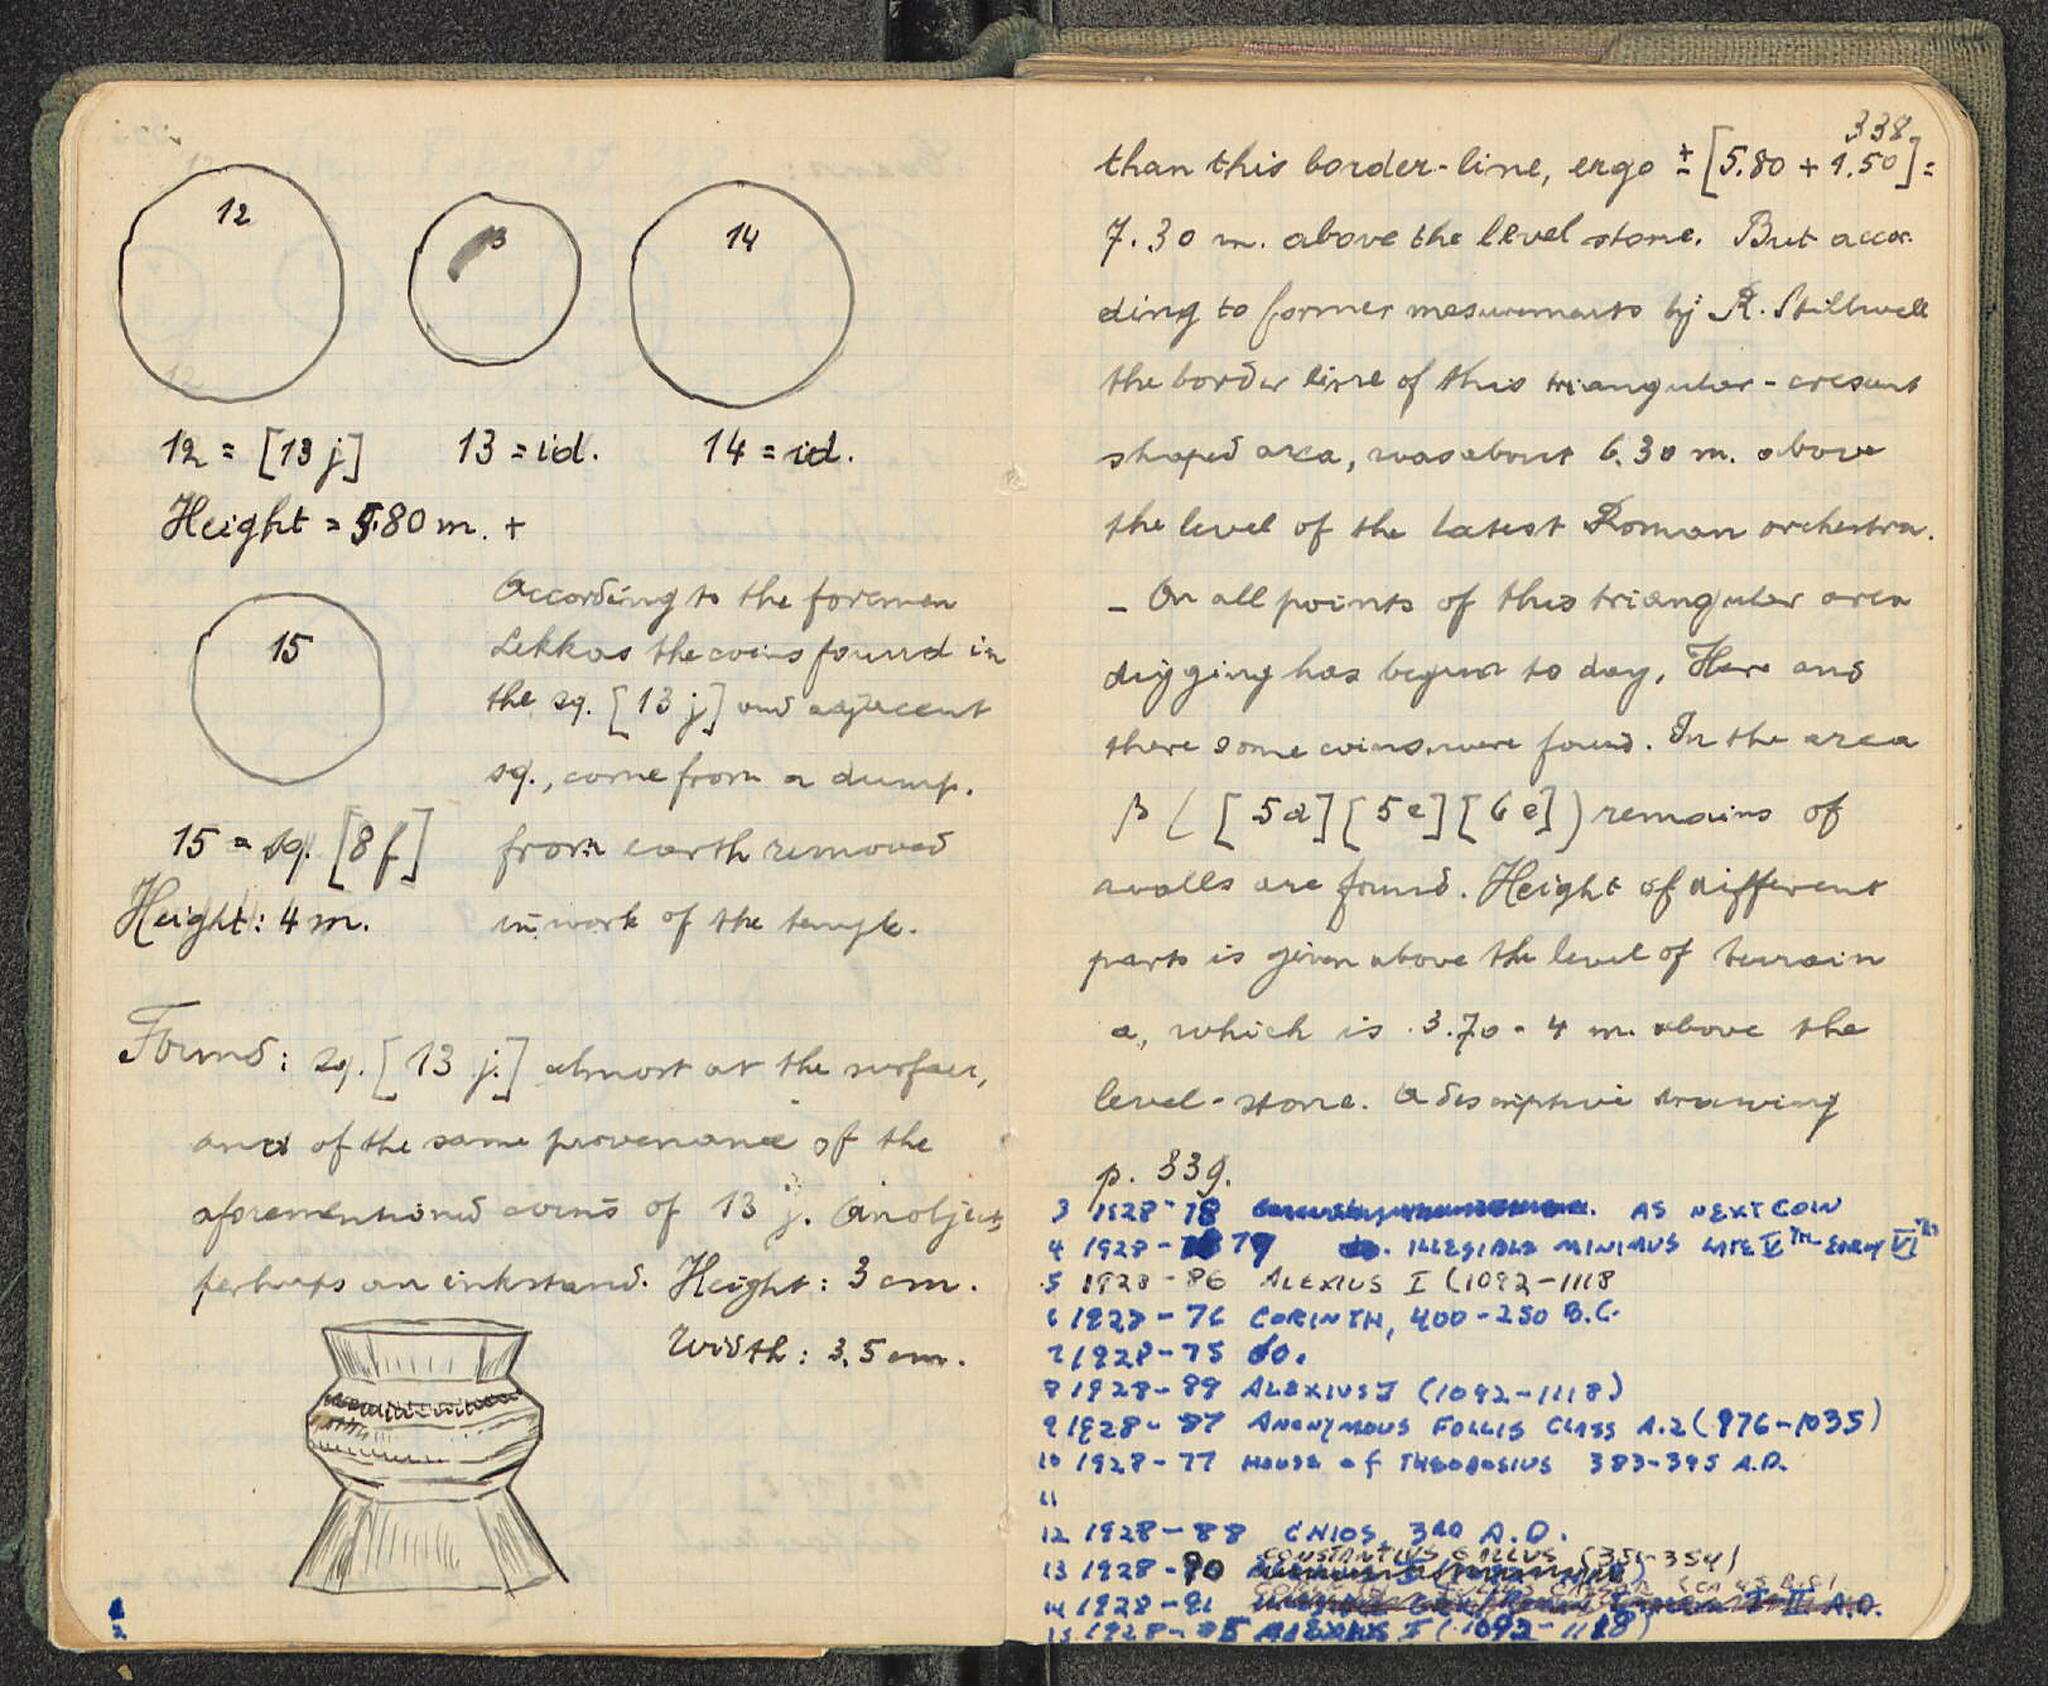 12
13
14
12 = [13 j]
13 = id.
14 = id.
Height = 5.80 m. +
15
15 = sq. [8 f]
Height: 4 m.
According to the foreman
Lekkas the coins found in
the sq. [13 j] and adjacent
sq., come from a dump.
from earth removed
in work of the temple.
Found: sq. [13 j.] almost at the surface,
and of the same provenance of the
aforementioned coins of 13 j. An object,
perhaps an inkstand. Height: 3 cm.
Width: 3.5 cm.
1
2
338
than this border-line, ergo ± [5.80 + 1.50] =
7.30 m. above the level stone. But accor-
ding to former mesurements by R. Stillwell
the border line of this triangular-cresent
shaped area, was about 6.30 m. above
the level of the latest Roman orchestra.
- On all points of this triangular area
digging has begun to day. Here and
there some coins were found. In the area
β ( [5d] [5e] [6e] ) remains of
walls are found. Height of different
parts is given above the level of terrain
a, which is 3.70 - 4 m. above the
level-stone. A descriptive drawing
p. 339.
3 1928-78 AS NEXT COIN
4 1928-79 ILLEGIBLE MINIMUS LATE Vth-EARLY VIth
5 1928-86 ALEXIUS I (1092-1118
6 1928-76 CORINTH, 400-250 B.C.
7 1928-75 do.
8 1928-89 ALEXIUS I (1092-1118)
9 1928-87 ANONYMOUS FOLLIS CLASS A.2 (976-1035)
10 1928-77 HOUSE of THEODOSIUS 383-395 A.D.
11
12 1928-88 CHIOS, 3RD A.D.
CONSTANTIUS GALLUS (351-354)
13 1928-90
14 1928-91 A.D.
15 1928- ALEXIUS I (1092-1118)